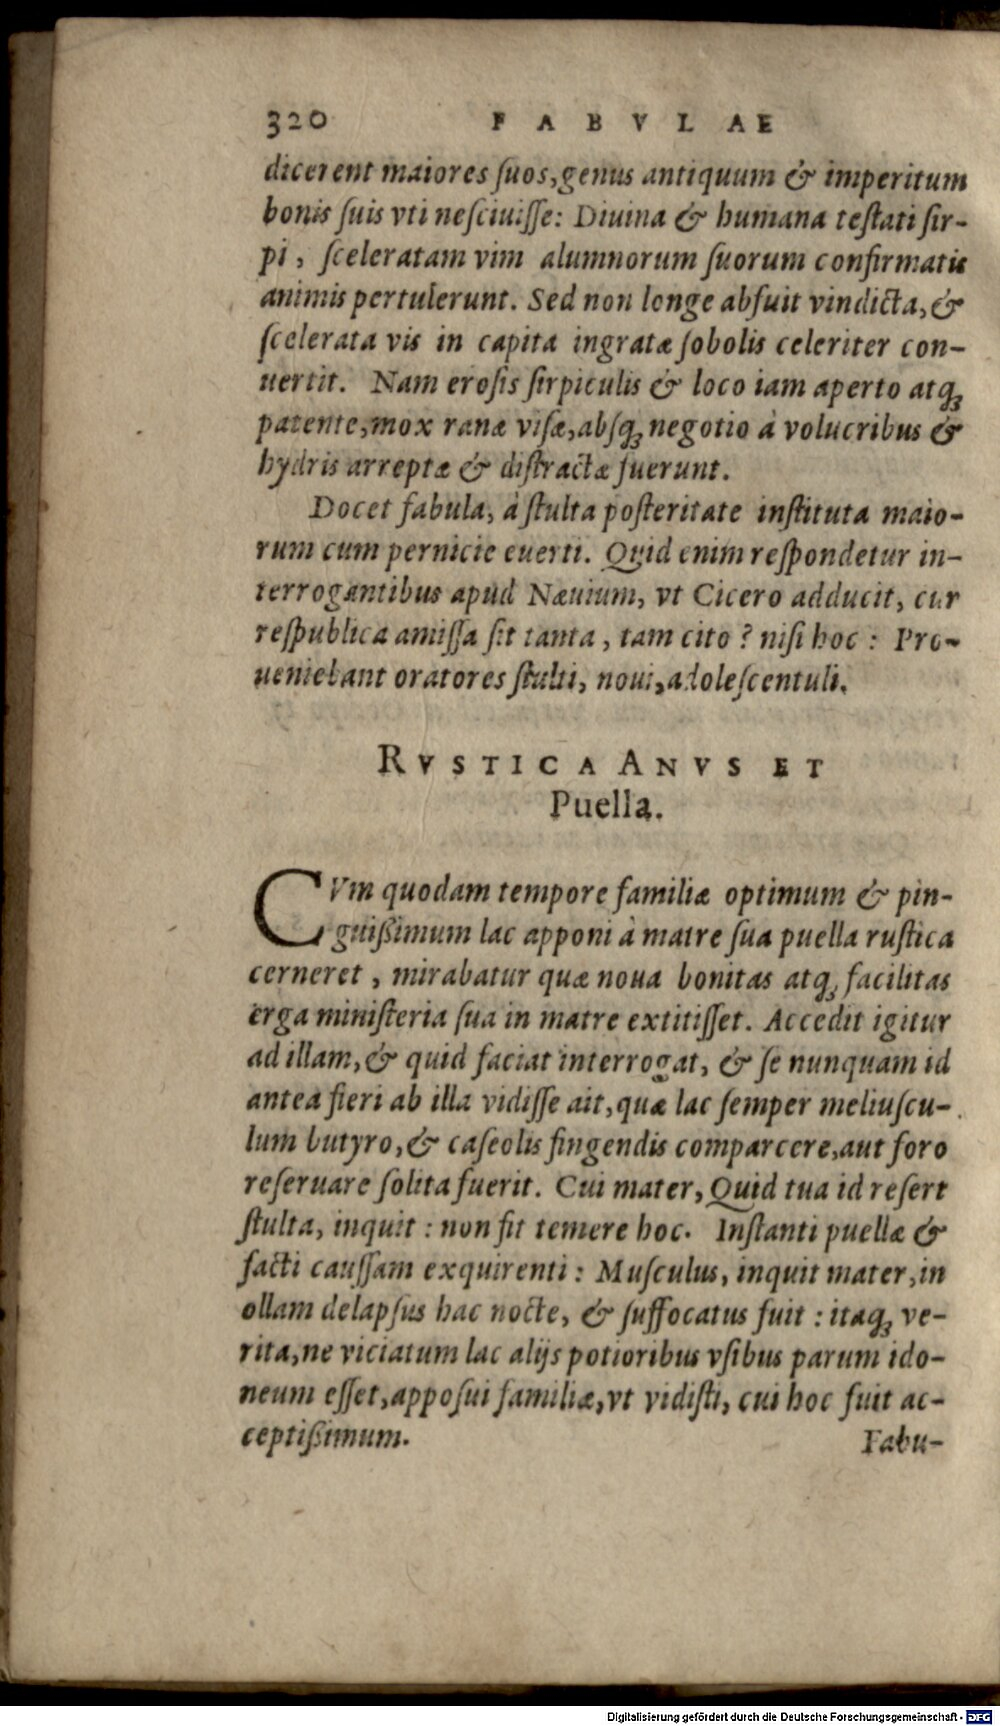 320 FABVLAE
dicerent maiores ſuos,genus antiquum & imperitum
bonis ſuis vti neſciuiſſe: Diuina & humana teſtati ſir-
pi, ſceleratam vim alumnorum ſuorum confirmatis
animis pertulerunt. Sed non longe abfuit vindicta,&
ſcelerata vis in capita ingratæ ſobolis celeriter con-
uertit. Nam eroſis ſirpiculis & loco iam aperto atq;
patente,mox ranæ viſæ,abſq; negotio à volucribus &
hydris arreptæ & diſtractæ fuerunt.
Docet fabula, à ſtulta poſteritate inſtituta maio-
rum cum pernicie euerti. Quid enim reſpondetur in-
terrogantibus apud Næuium, vt Cicero adducit, cur
reſpublica amiſſa ſit tanta, tam cito? niſi hoc: Pro-
ueniebant oratores ſtulti, noui,adoleſcentuli.
RVSTICA ANVS ET
Puella.
CVm quodam tempore familiæ optimum & pin-
guißimum lac apponi à matre ſua puella ruſtica
cerneret, mirabatur quæ noua bonitas atq; facilitas
erga miniſteria ſua in matre extitiſſet. Accedit igitur
ad illam,& quid faciat interrogat, & ſe nunquam id
antea fieri ab illa vidiſſe ait,quæ lac ſemper meliuſcu-
lum butyro,& caſeolis fingendis comparcere,aut foro
reſeruare ſolita fuerit. Cui mater, Quid tua id refert
ſtulta, inquit: non fit temere hoc. Inſtanti puellæ &
facti cauſſam exquirenti: Muſculus, inquit mater,in
ollam delapſus hac nocte, & ſuffocatus fuit: itaq; ve-
rita,ne viciatum lac alijs potioribus vſibus parum ido-
neum eſſet,appoſui familiæ,vt vidiſti, cui hoc fuit ac-
ceptißimum.
Fabu-
Digitalisierung gefördert durch die Deutsche Forschungsgemeinschaft - DFG